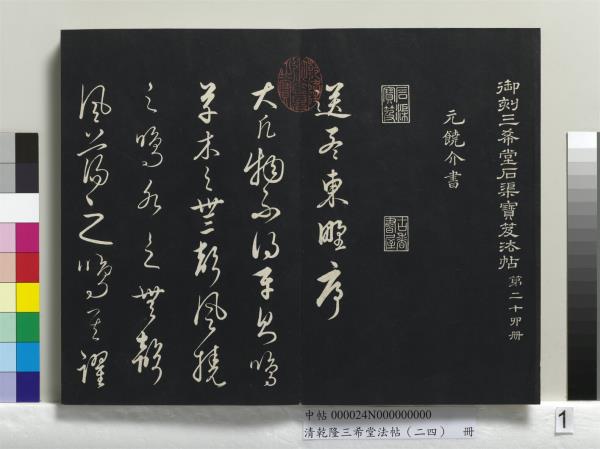 御刻三希堂石渠寶笈法帖 第二十四冊
元饒介書
石渠寶笈
送孟東野序
大凡物不得平則鳴
草木之無聲風撓
之鳴水之無聲
風蕩之鳴其躍
中帖 000024N000000000
清乾隆三希堂法帖(二四) 冊
1